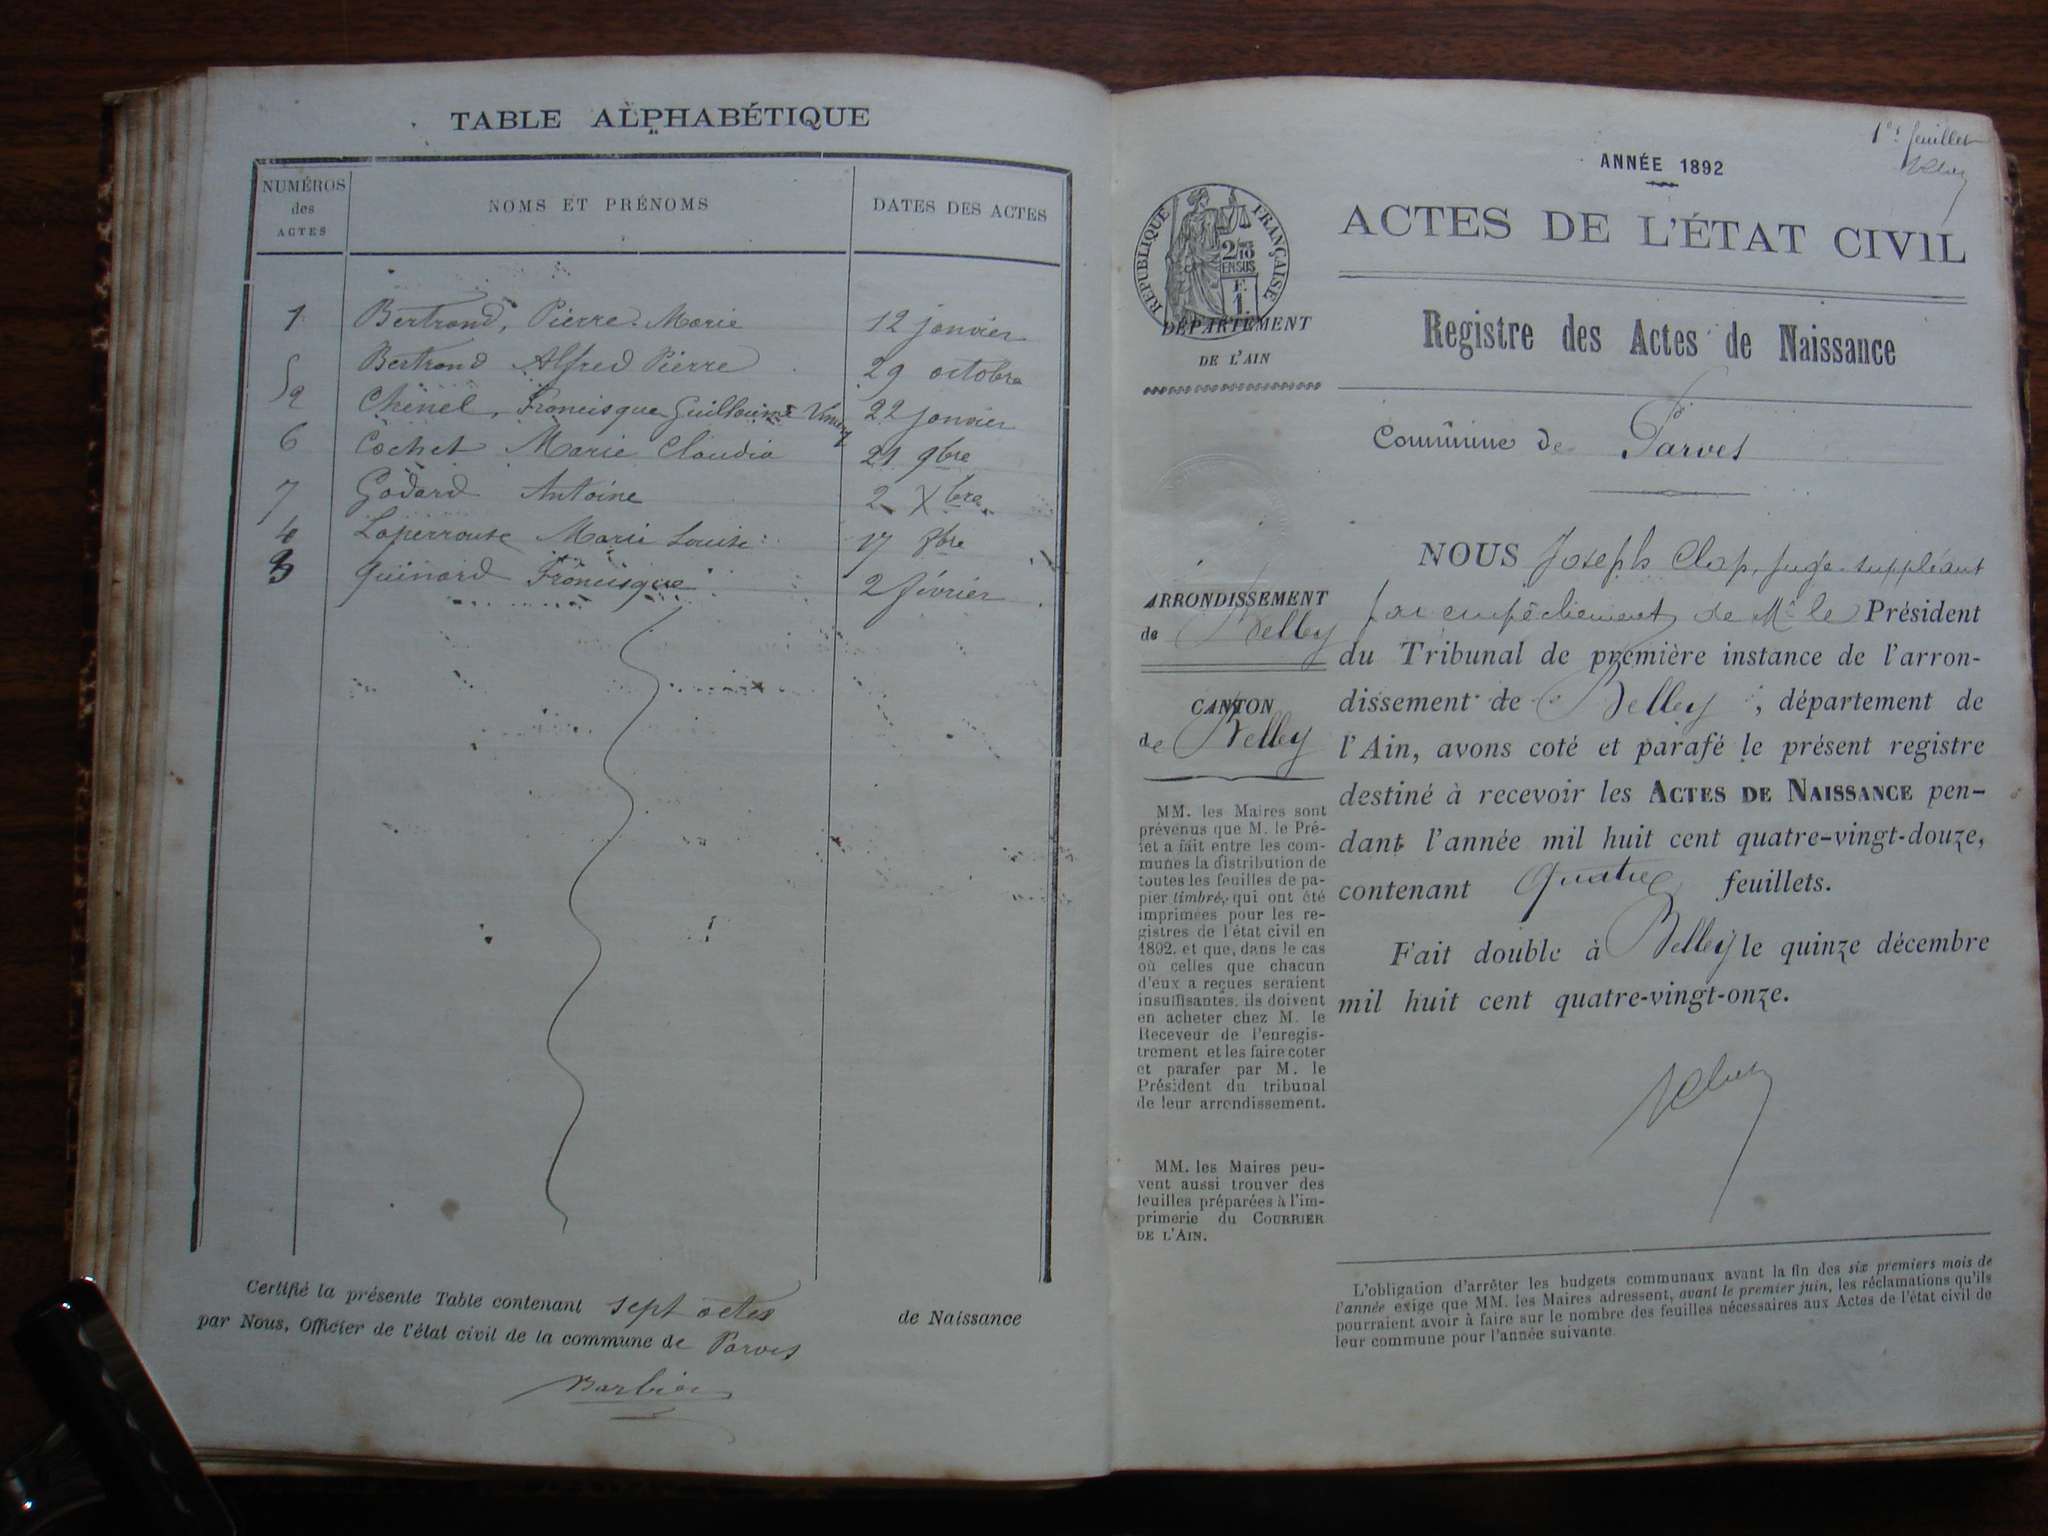 TABLE ALPHABÉTIQUE
NUMÉROS des ACTES
NOMS ET PRÉNOMS
DATES DES ACTES
1 Bertrand, Pierre Marie 12 janvier
5 Bertrand Alfred Pierre 29 octobre
2 Chenel, Francisque Guillaume 22 janvier
6 Cochet Marie Claudia 21 9bre
7 Godard Antoine 2 Xbre
4 Laperrouse Marie Louise 17 8bre
3 Guinard Francisque 2 février
Certifié la présente Table contenant sept actes de Naissance
par Nous, Officier de l'état civil de la commune de Parves
Barbier
1er feuillet
ANNÉE 1892
ACTES DE L'ÉTAT CIVIL
RÉPUBLIQUE FRANÇAISE
2/10
EN SUS
F.
1.
DÉPARTEMENT
DE L'AIN
Registre des Actes de Naissance
Commune de Parves
ARRONDISSEMENT
de Belley
CANTON
de Belley
MM. les Maires sont
prévenus que M. le Pré-
fet a fait entre les com-
munes la distribution de
toutes les feuilles de pa-
pier timbré, qui ont été
imprimées pour les re-
gistres de l'état civil en
1892, et que, dans le cas
où celles que chacun
d'eux a reçues seraient
insuffisantes, ils doivent
en acheter chez M. le
Receveur de l'enregis-
trement et les faire coter
et parafer par M. le
Président du tribunal
de leur arrondissement.
MM. les Maires peu-
vent aussi trouver des
feuilles préparées à l'im-
primerie du COURRIER
DE L'AIN.
NOUS Joseph Clap, juge suppléant
par empêchement de Mr le Président
du Tribunal de première instance de l'arron-
dissement de Belley, département de
l'Ain, avons coté et parafé le présent registre
destiné à recevoir les ACTES DE NAISSANCE pen-
dant l'année mil huit cent quatre-vingt-douze,
contenant Quatre feuillets.
Fait double à Belley le quinze décembre
mil huit cent quatre-vingt-onze.
L'obligation d'arrêter les budgets communaux avant la fin des six premiers mois de
l'année exige que MM. les Maires adressent, avant le premier juin, les réclamations qu'ils
pourraient avoir à faire sur le nombre des feuilles nécessaires aux Actes de l'état civil de
leur commune pour l'année suivante.